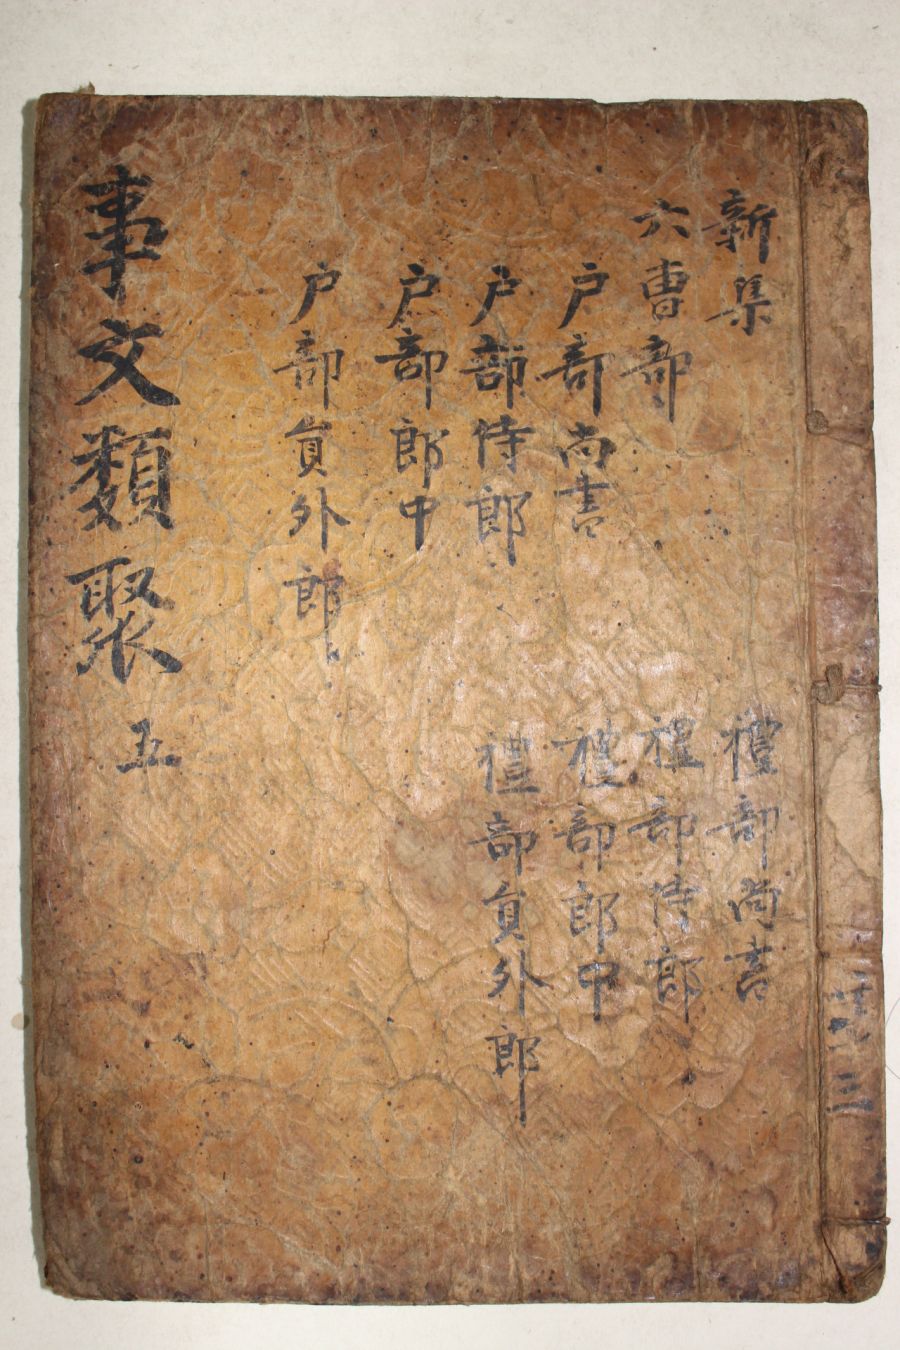 新集
六曹部
户部尚書
户部侍郎
户部郎中
户部員外郎
禮部尚書
禮部侍郎
禮部郎中
禮部員外郎
事文類聚 五
三